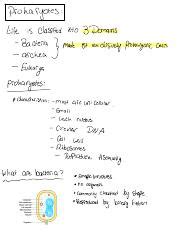 Prokaryotes
Life is Classified into 3 Domains
- Bacteria
- archea
made of exclusively Prokaryotic Cells
- Eukarya
prokaryotes:
• Characteristics: - most are unicellular
- Small
- lack nucleus
- Circular DNA
- Cell wall
- Ribosomes
-
What are bacteria?
• Simple structures
• no organelles
• Commonly classified by shape
• Reproduced by binary fission